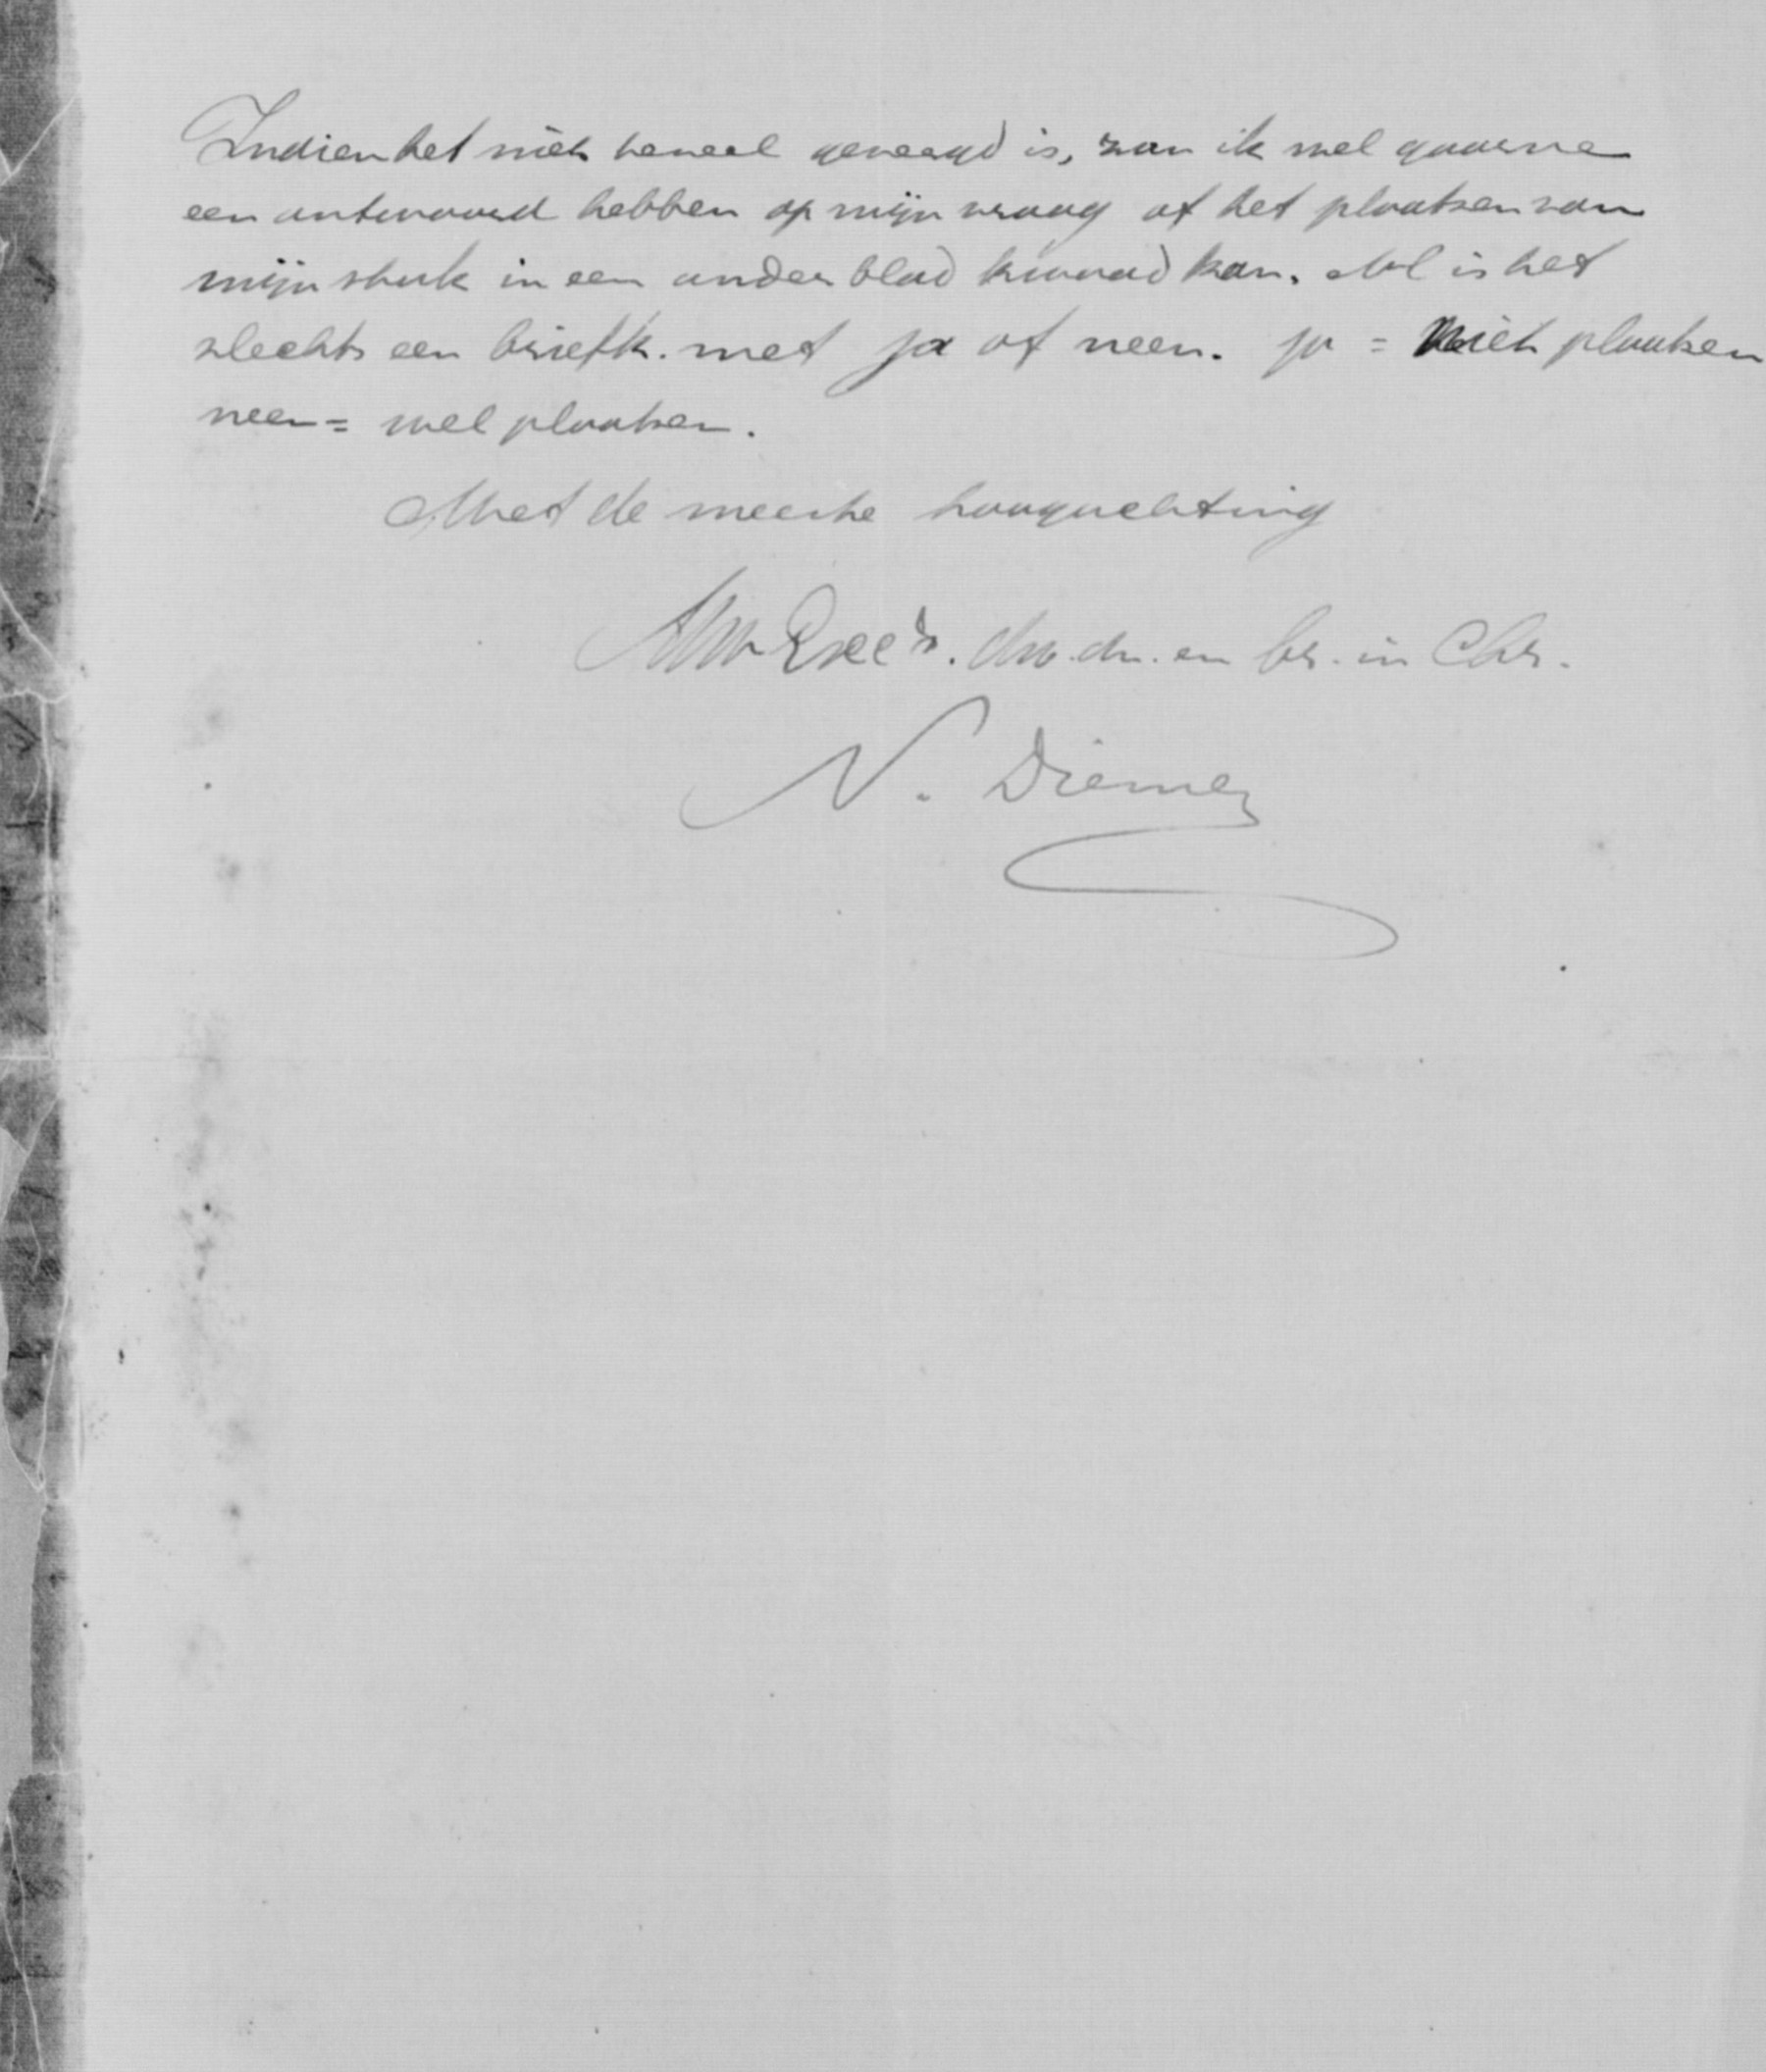 Indien het niet teveel gevraagd is, zou ik wel gaarne
een antwoord hebben op mijn vraag of het plaatsen van
mijn stuk in een ander blad kwaad kan. Al is het
slechts een briefk. met ja of neen. ja = niet plaatsen
neen = wel plaatsen.
Met de meeste hoogachting
Uw dw. dn. en br. in Chr.
N. Diemer